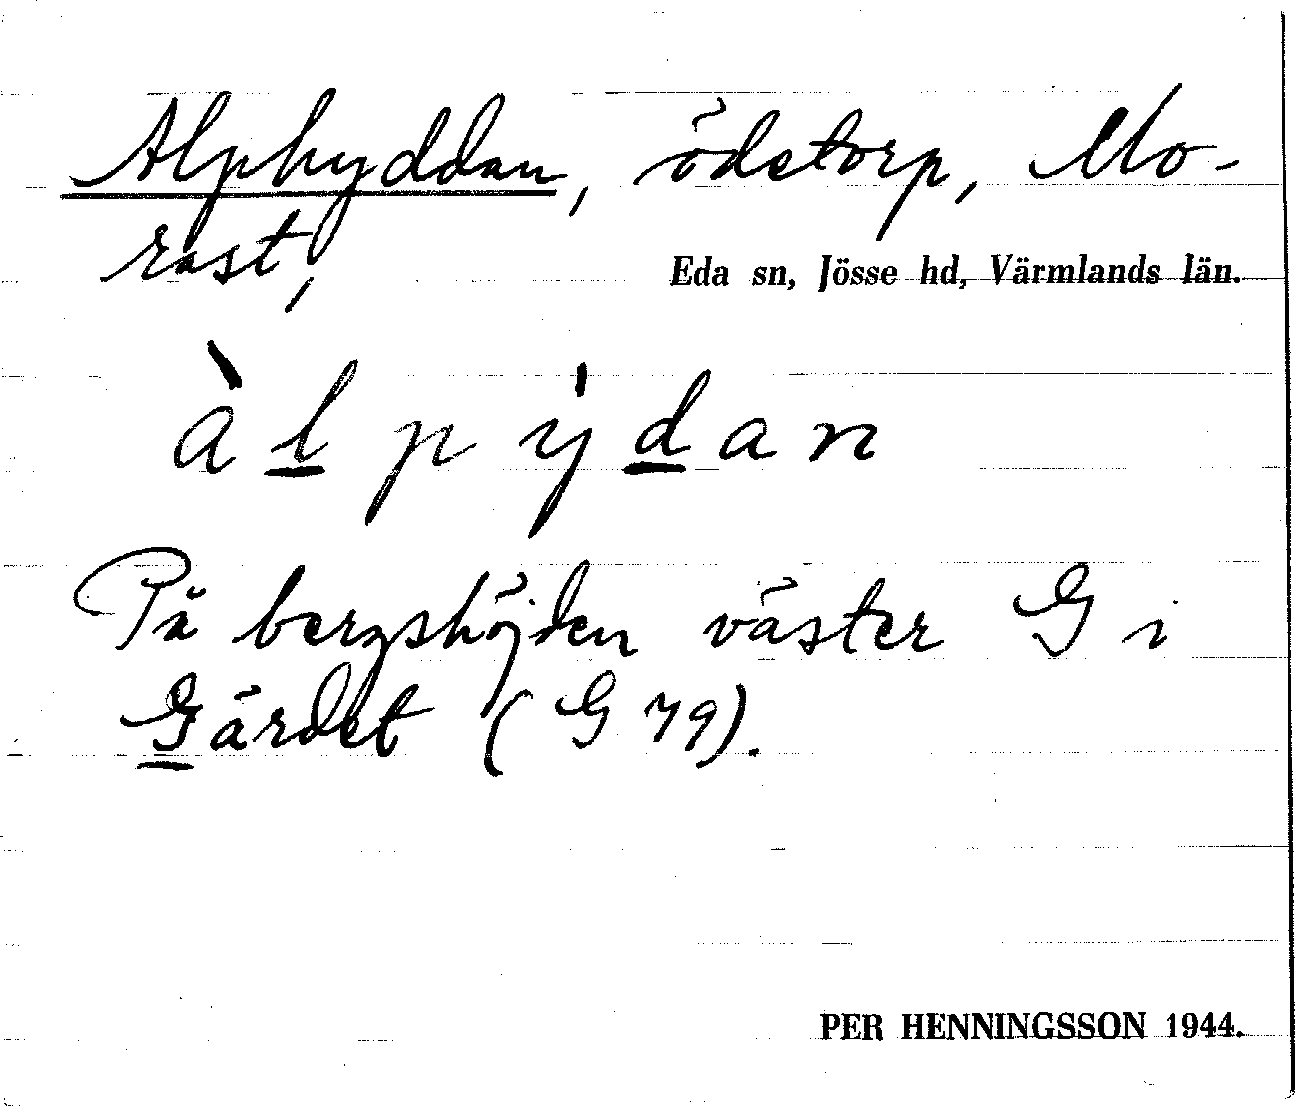 Alphyddan, ödetorp, Mo-
rast,
Eda sn, Jösse hd, Värmlands län.
àlpẏdan
På bergshöjden väster G i
Gärdet (G 79).
PER HENNINGSSON 1944.